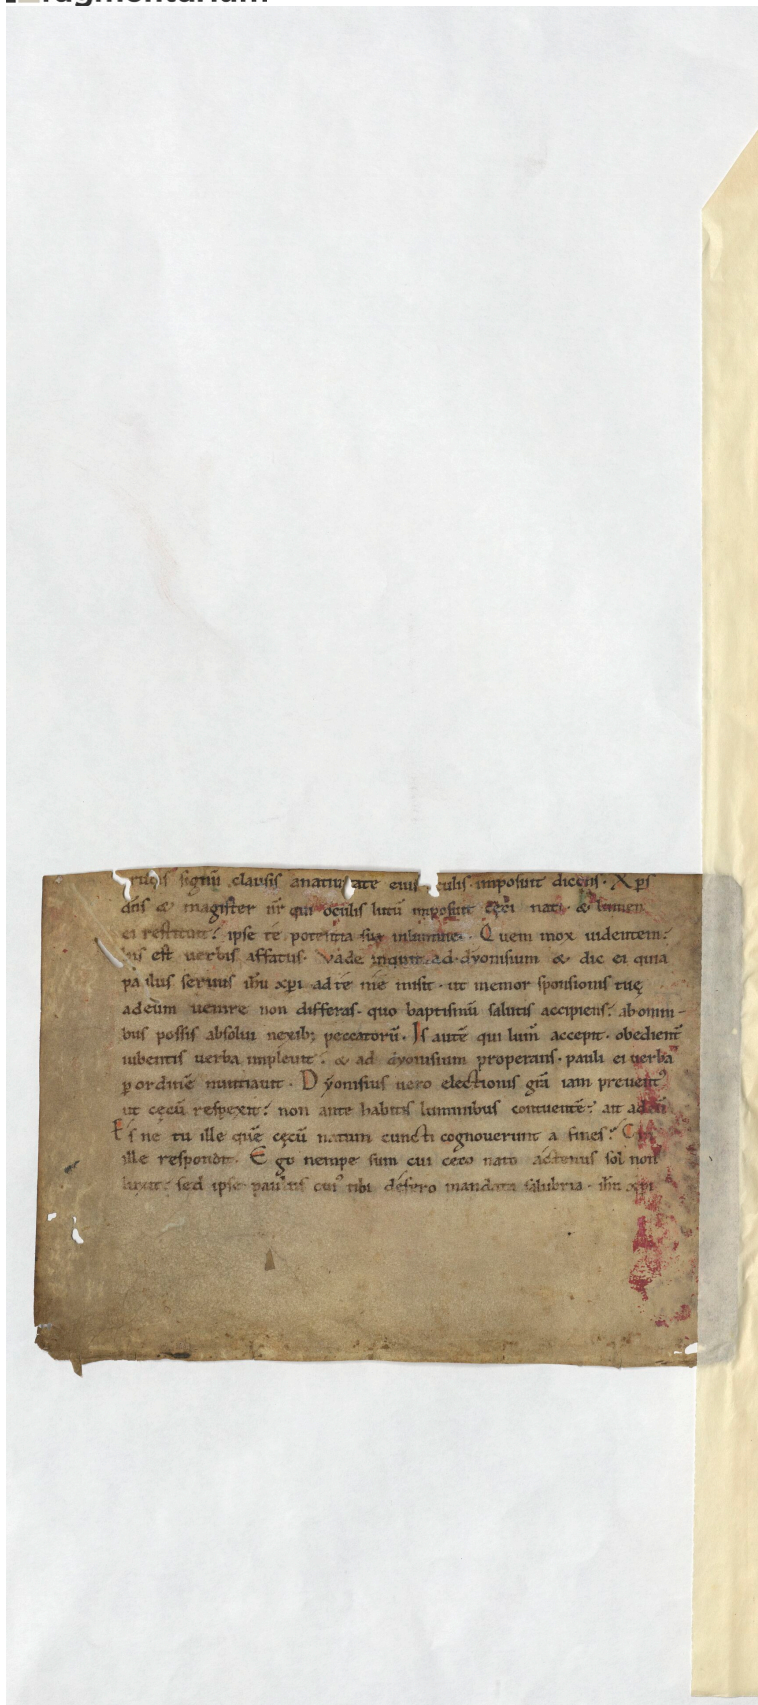 signū clausis a natiuitate eius oculis imposuit dicens · Xp̄s
dn̄s & magister nr̄ qui oculis lutū imposuit cęci nati · & lumen
ei restituit : ipse te potentia sua inluminet · Quem mox uidentem :
his est uerbis affatus · Vade inquit ad dyonisium & dic ei quia
paulus seruus ihū xp̄i ad te me misit · ut memor sponsionis tuę
ad eum uenire non differas · quo baptismū salutis accipiens : ab omni-
bus possis absolui nexib; peccatorū · Is autē qui lum̄ accepit · obedient̄
iubentis uerba impleuit : & ad dyonisium properans · pauli ei uerba
ꝑ ordinē nuntiauit · Dyonisius uero electionis grā iam preuent᾽
ut cęcū respexit : non ante habitis luminibus contuentē : ait ad eū
Es ne tu ille quē cęcū natum cuncti cognouerunt a fines :
ille respondit · Ego nempe sum cui ceco nato actenus sol non
luxit : sed ipse paulus cui᾽ tibi defero mandata salubria · ihū xp̄i